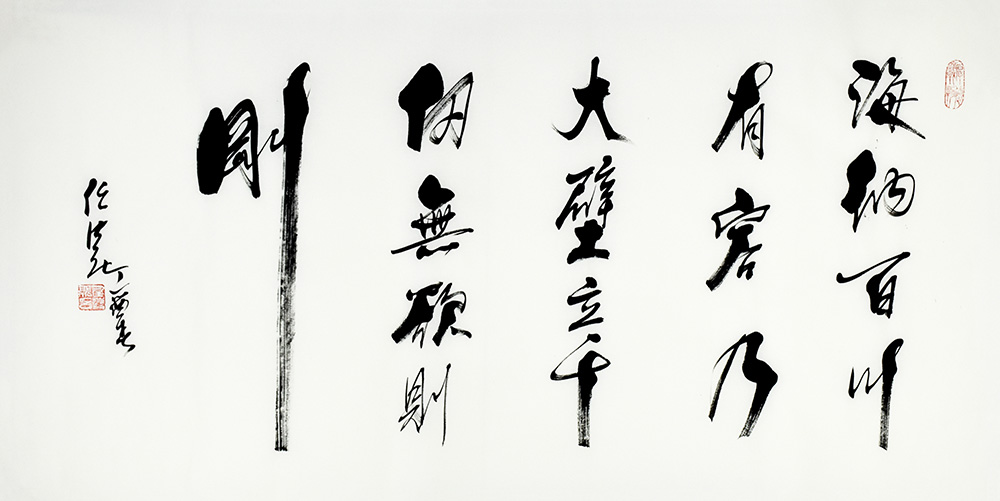 海納百川
有容乃
大壁立千
仞無欲則
剛
丁酉春